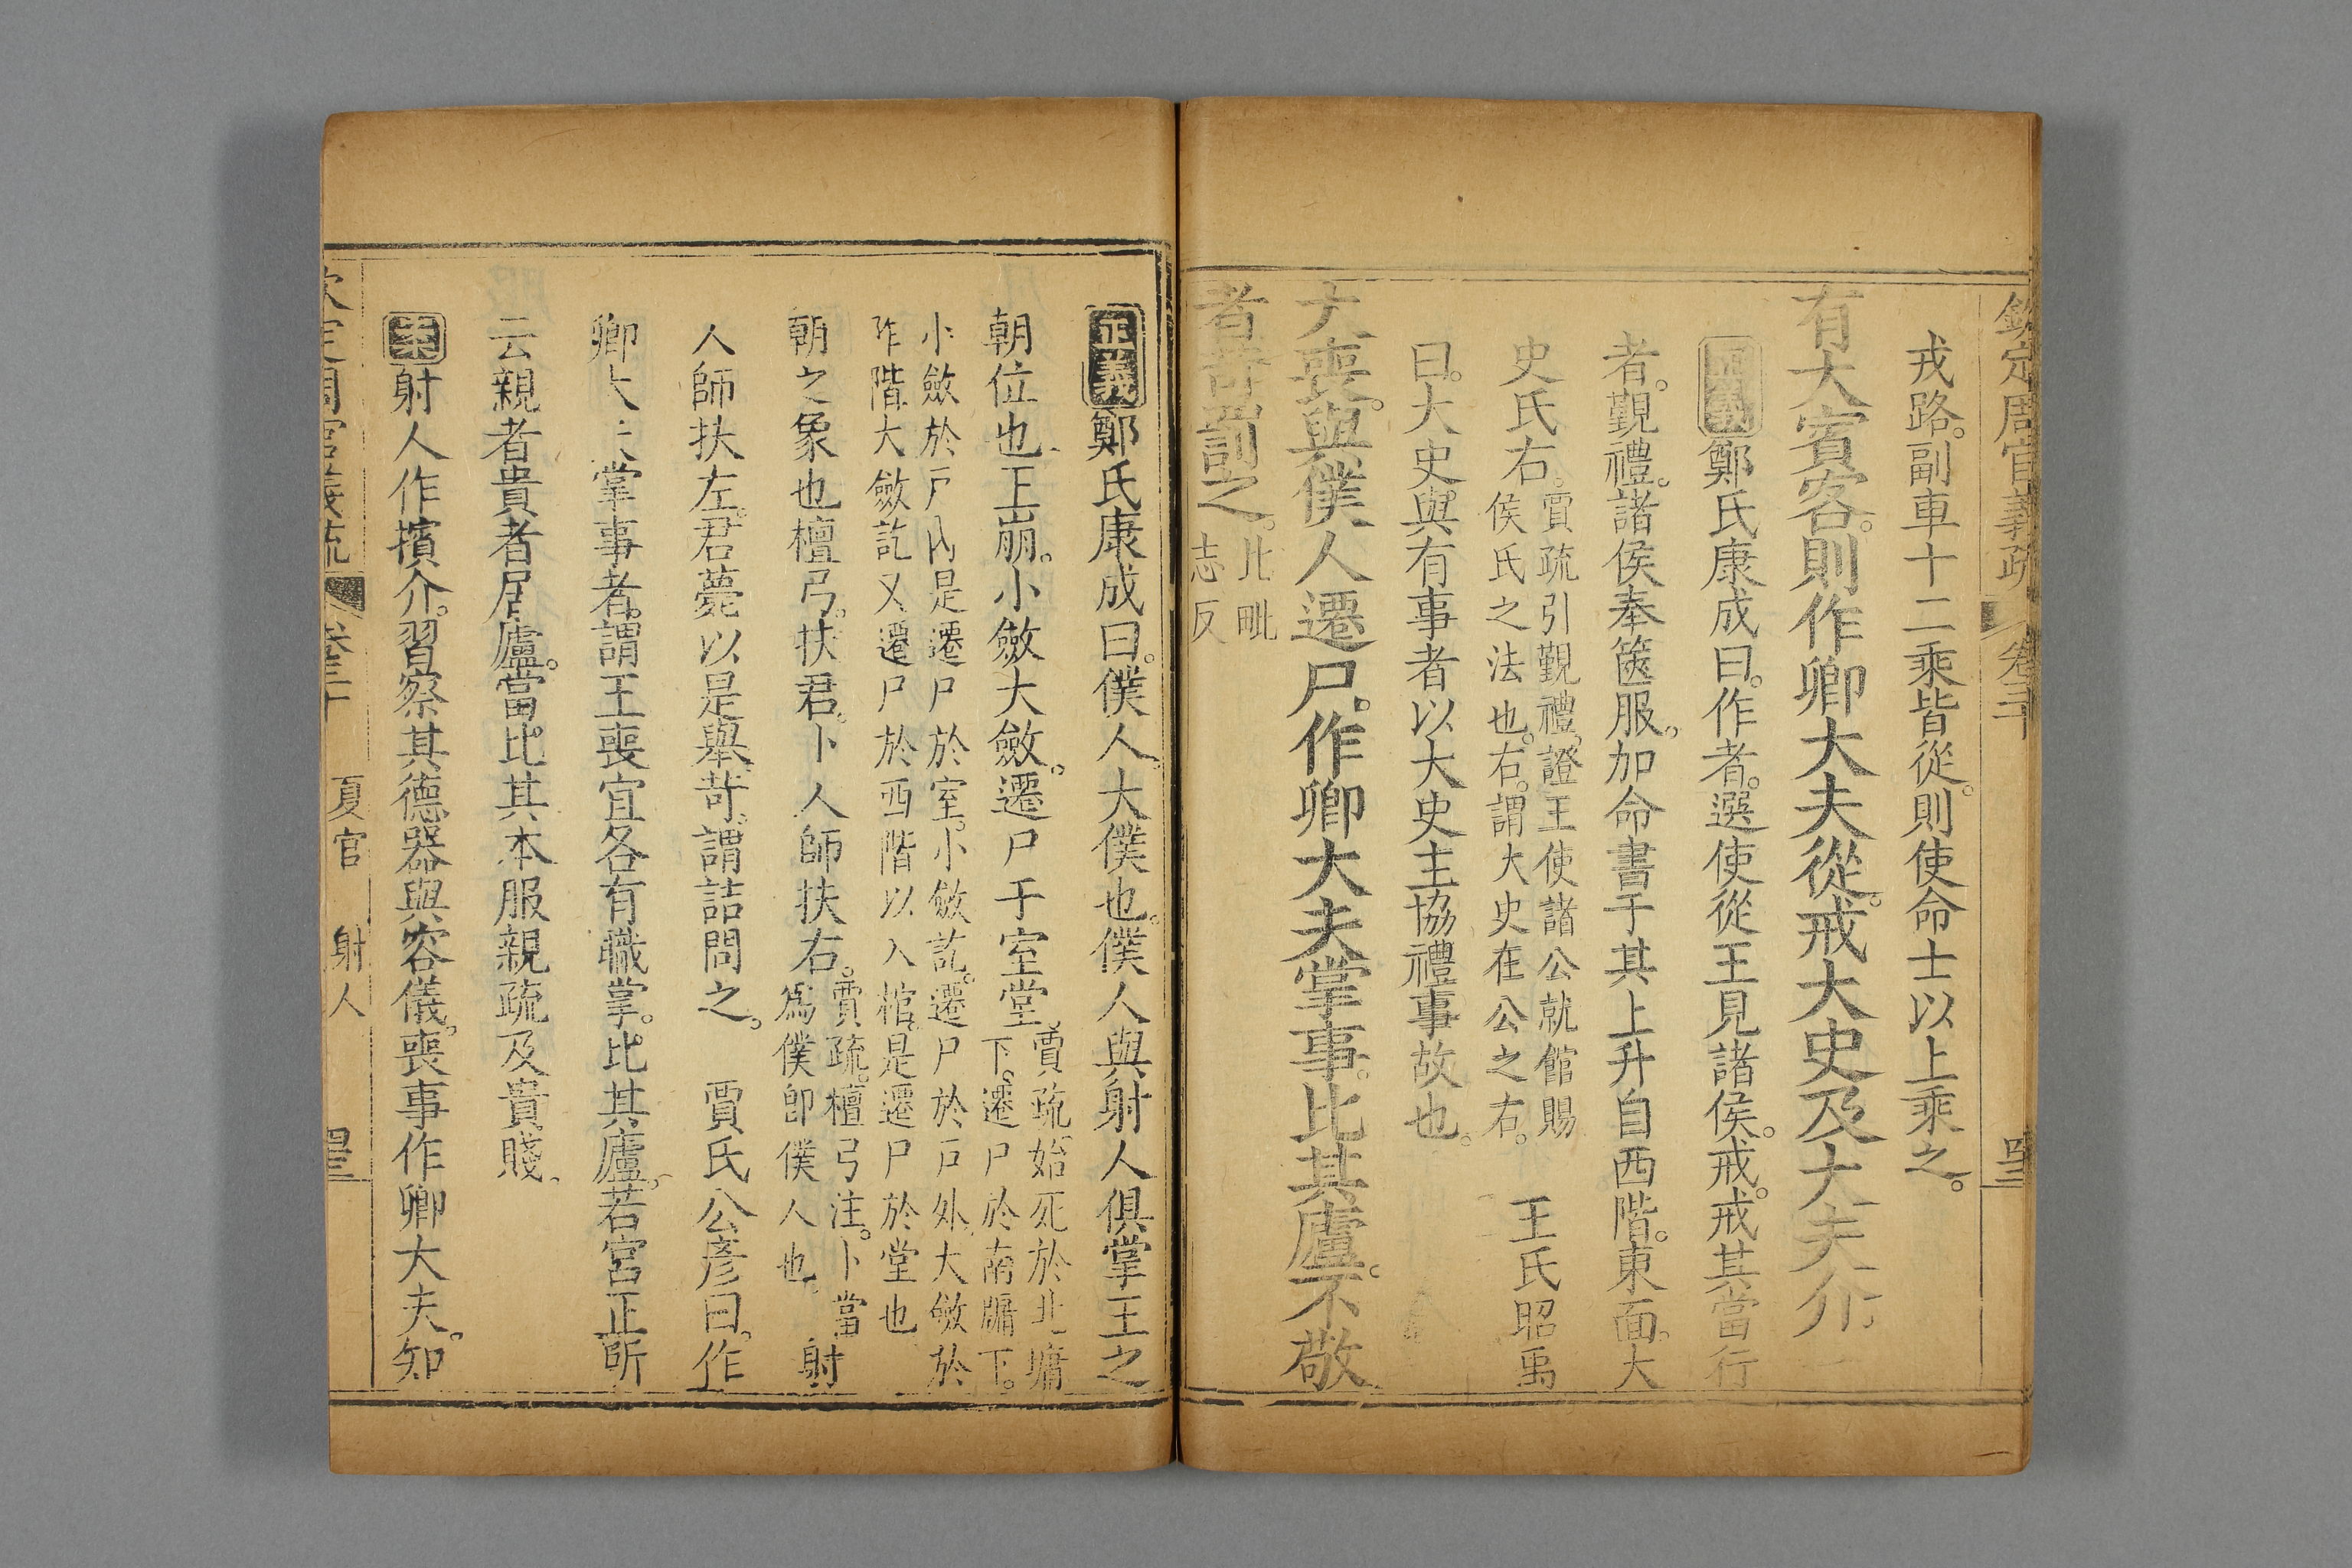 欽定周官義疏 卷三十
戎路。副車十二乘皆從。則使命士以上乘之。
有大賓客。則作卿大夫從。戒大史及大夫介。
正義鄭氏康成曰。作者。選使從王見諸侯。戒。戒其當行
者。覲禮。諸侯奉篋服。加命書于其上升自西階。東面。大
史氏右。賈疏引覲禮。證王使諸公就館賜
侯氏之法也。右。謂大史在公之右。 王氏昭禹
曰。大史。與有事者以大史主協禮事故也。
大喪。與僕人遷尸。作卿大夫掌事。比其廬。不敬
者苛罰之。比毗
志反
正義鄭氏康成曰。僕人。大僕也。僕人與射人俱掌王之
朝位也。王崩。小斂大斂。遷尸于室堂。賈疏始死於北墉
下。遷尸於南牖下。
小斂於戸內是遷尸於室。小斂訖。遷尸於戸外。大斂於
阼階大斂訖又遷尸於西階以入棺。是遷尸於堂也
朝之象也檀弓。扶君。卜人師扶右。賈疏。檀弓注。卜當
爲僕卽僕人也。 射
人師扶左。君薨以是舉。苛。謂詰問之。 賈氏公彥曰。作
卿大 掌事者。謂王喪宜各有職掌。比其廬。若宮正所
云親者貴者居廬。當比其本服親疏及貴賤。
案射人作擯介。習察其德器與容儀。喪事作卿大夫。知
夏官 射人